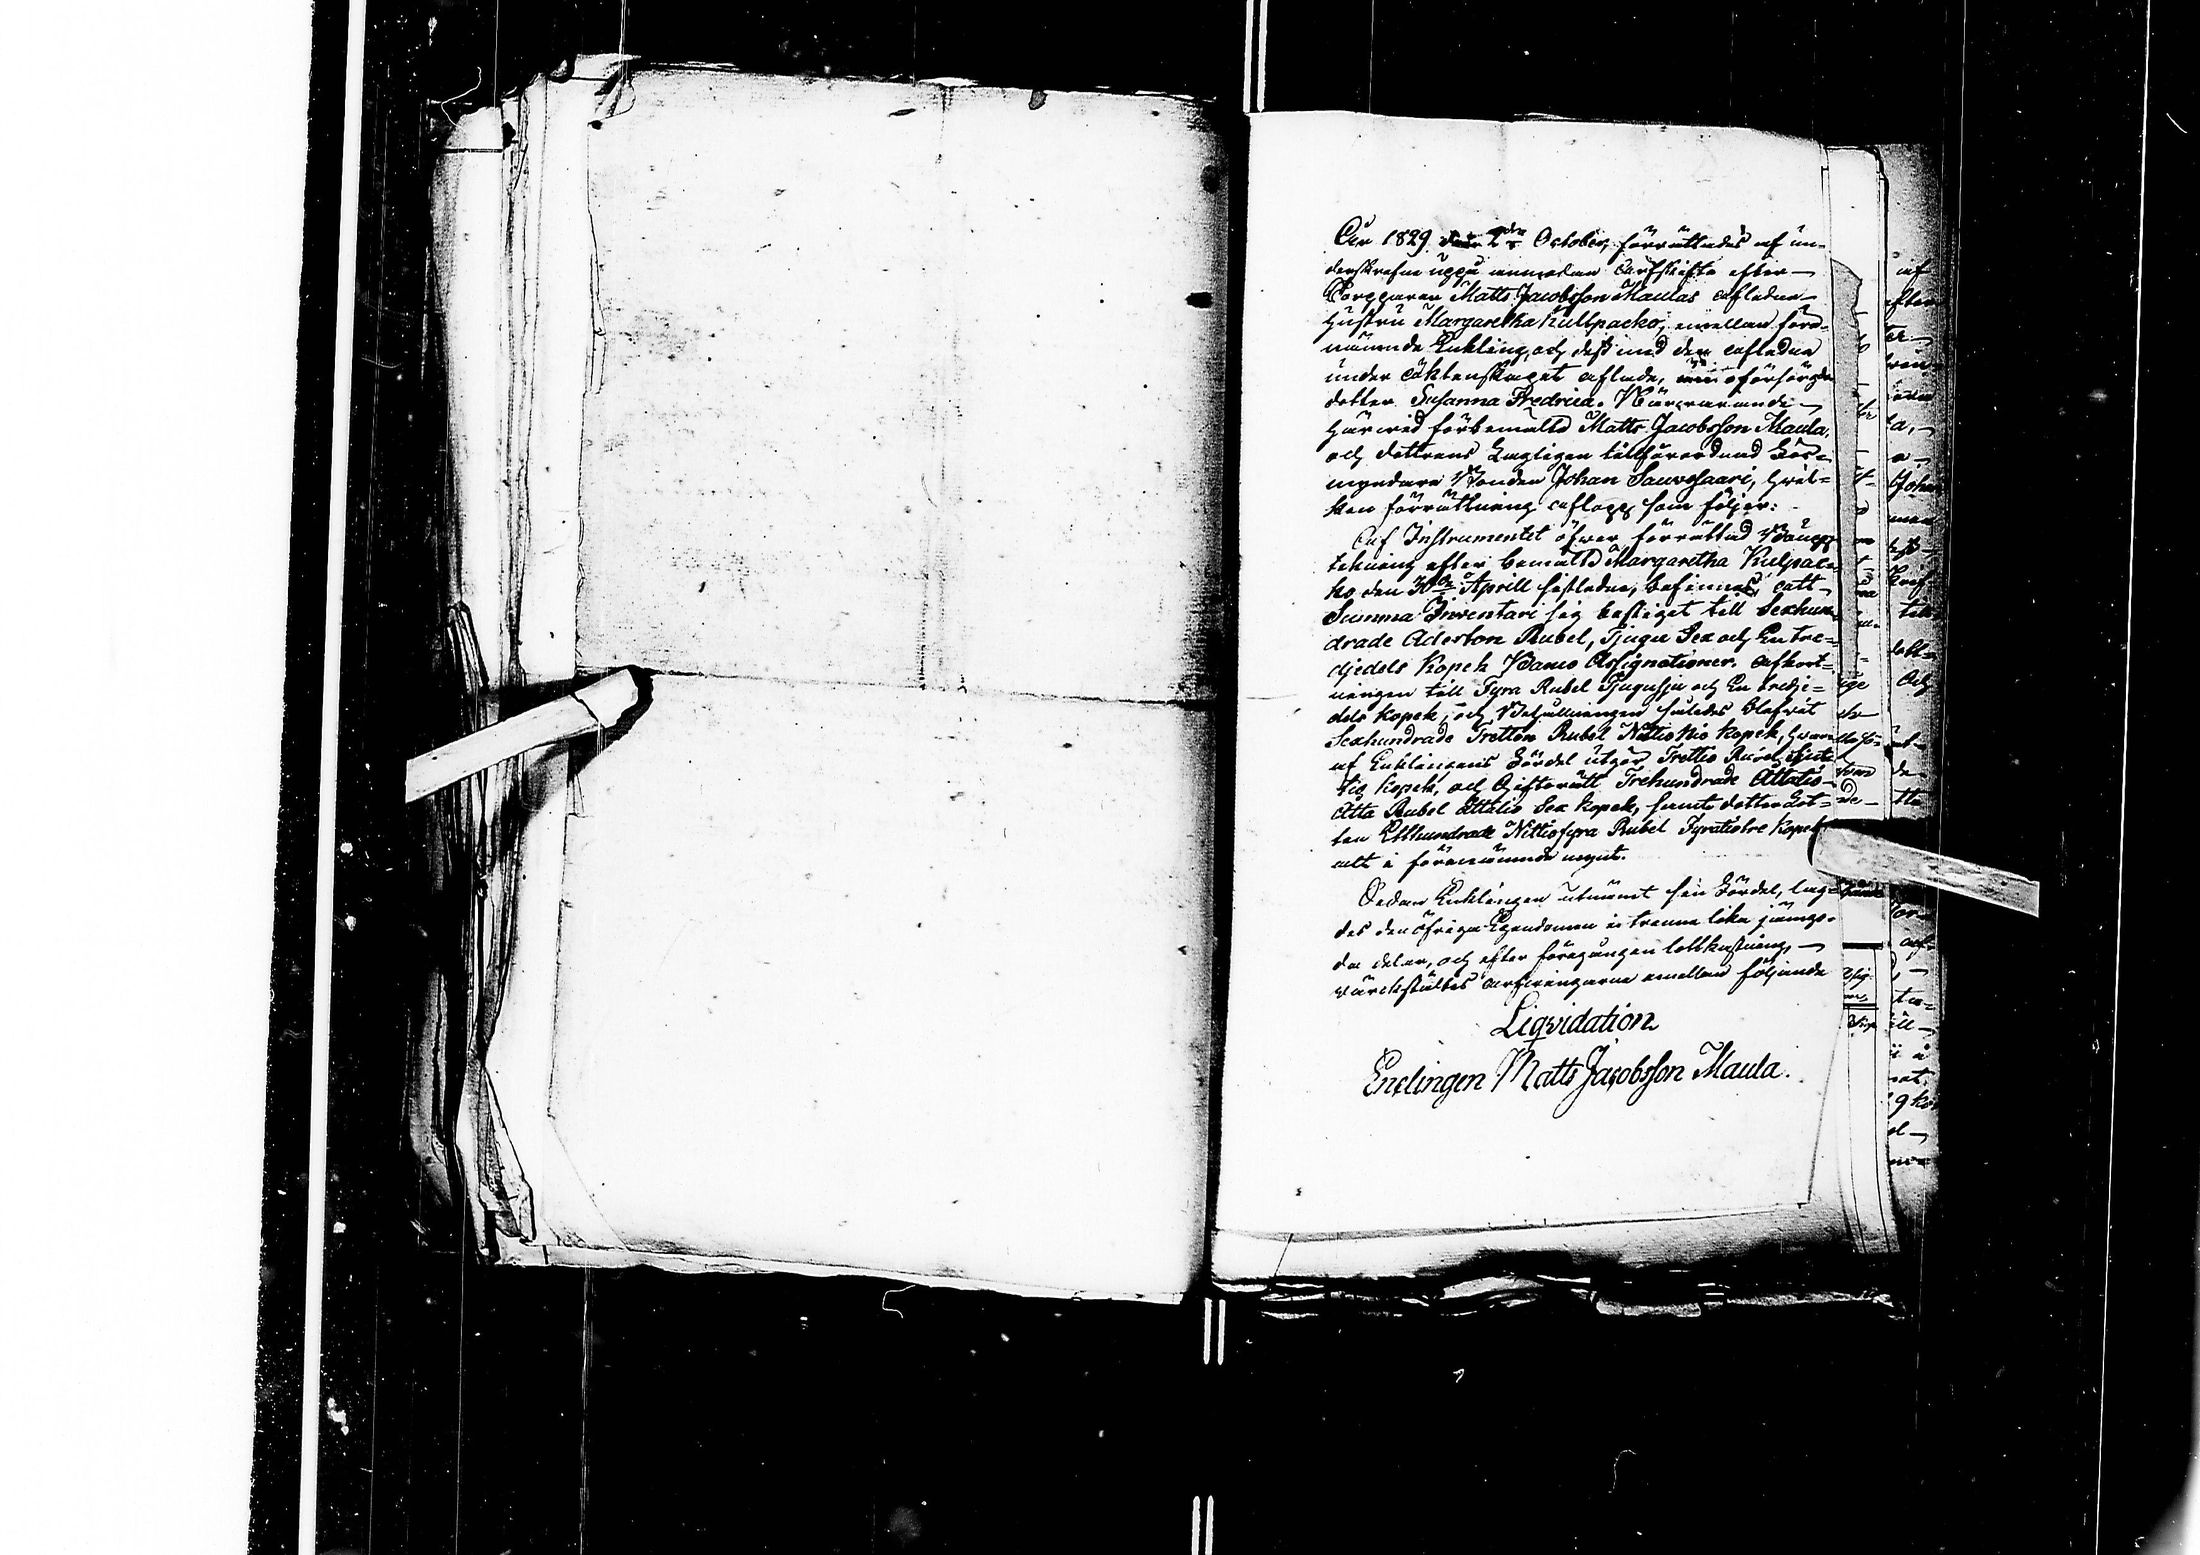 År 1829 den 2dra October, förrättades af un-
derskrefne uppå anmodan arfskifte efter
Torpparen Matts Jacobsson Maulas afledne
hustru Margaretha Kullpacko, emellan före-
nämnde Enkling, och dess med den afledne
under äktenskapet aflade, oförsörgda
dotter Susanna Fredrica. Närvarande
härvid förbemälte Matts Jacobsson Maula,
och dottrens Lagligen tillförordnad För-
myndare Bonden Johan Sauvosaari, hvil-
ken förrättning aflopp som följer:
Af Instrumentet öfver förrättad Boupp-
tekning efter bemälte Margaretha Kulpac-
ko den 30de Aprill sistledne, befinnes, att
Summa Inventarii sig bestiget till Sexhun-
drade Aderton Rubel, Tjugu Sex och En tre-
djedels Kopek Banco Assignationer. afkort-
ningen till Fyra Rubel Tjugusju och En tredje-
dels Kopek, och Behållningen således blefvit
Sexhundrade Tretton Rubel Nittionio Kopek, hvar-
af Enklingens Fördel utgör Trettio Rubel
tio Kopek, och Giftorätt Trehundrade Åttatio-
åtta Rubel Åttatio Sex Kopek, samt dotter Lot-
ten Etthundrade Nittiofyra Rubel Fyratiotre Kopek
allt i förenämnde mynt.
Sedan Enklingen utnämt sin Fördel, lag-
des den öfriga Egendomen i trenne lika jämgo-
da delar, och efter föregången lottkastning,
värckstältes arfvingarne emellan följande
Liqvidation
Enclingen Matts Jacobsson Maula.